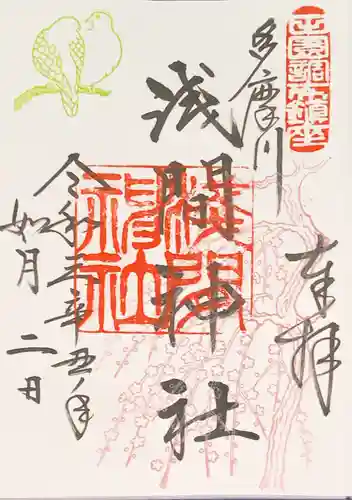 田園調布鎮座
奉拝
多摩川
浅間神社
浅間
神社
令和三辛丑年
如月二日